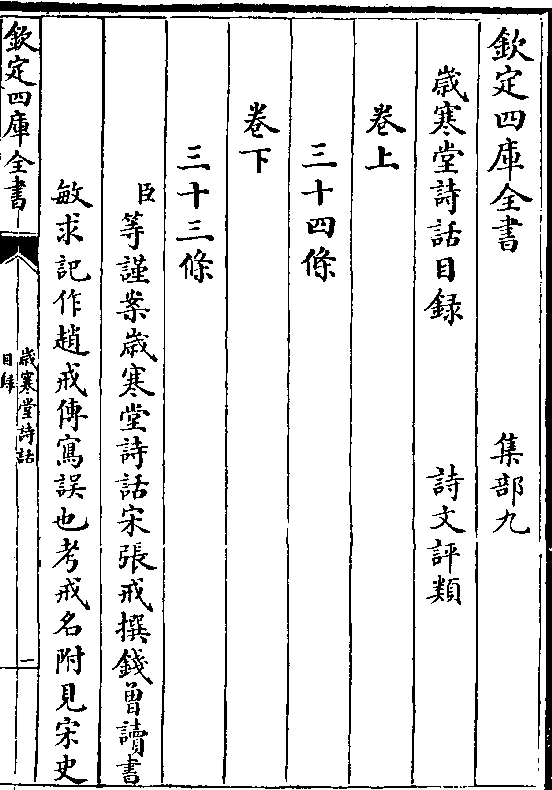 欽定四庫全書 集部九
歲寒堂詩話目録 詩文評類
卷上
三十四條
卷下
三十三條
臣等謹案歲寒堂詩話宋張戒撰錢曾讀書
敏求記作趙戒傳寫誤也考戒名附見宋史
欽定四庫全書
歲寒堂詩話
目録
一